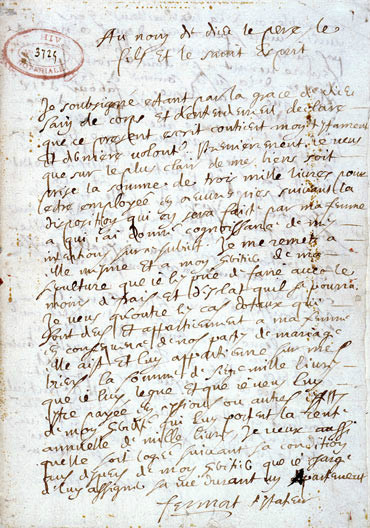 3725
Au nom de dieu le pere, le
fils et le saint esprit
Je soubsigne estant par la grace de dieu
sain de corps et dentendement declare
que ce present escrit contient mon testament
et derniere volonté. Premierement je veux
que sur le plus clair de mes biens soit
prise la somme de trois mille livres pour
estre employee en œuvres pies suivant la
disposition qui en sera fait par ma femme
a qui j'ai donné cognoissance de mes
intentions sur ce subiet. Je me remets a
elle mesme et a mon heritier de ma
sepulture que ie les prie de faire avec le
moins de frais et desclat quil se pourra
Je veux qu'outre les cas dotaux qui
sont deus et appartiennent a ma femme
en consequence de nos pactes de mariage
elle ait et luy appartienne sur mes
biens la somme de sept mille livres
que ie luy legue et que ie veux luy
estre payee en pensions ou autres effets
de mon heredité qui luy portent la rente
annuelle de mille livres, Je veux aussi
quelle soit logee suivant sa condition
aux despens de mon heritier que ie charge
de luy assigner sa vie durant un appartement
fermat testateur